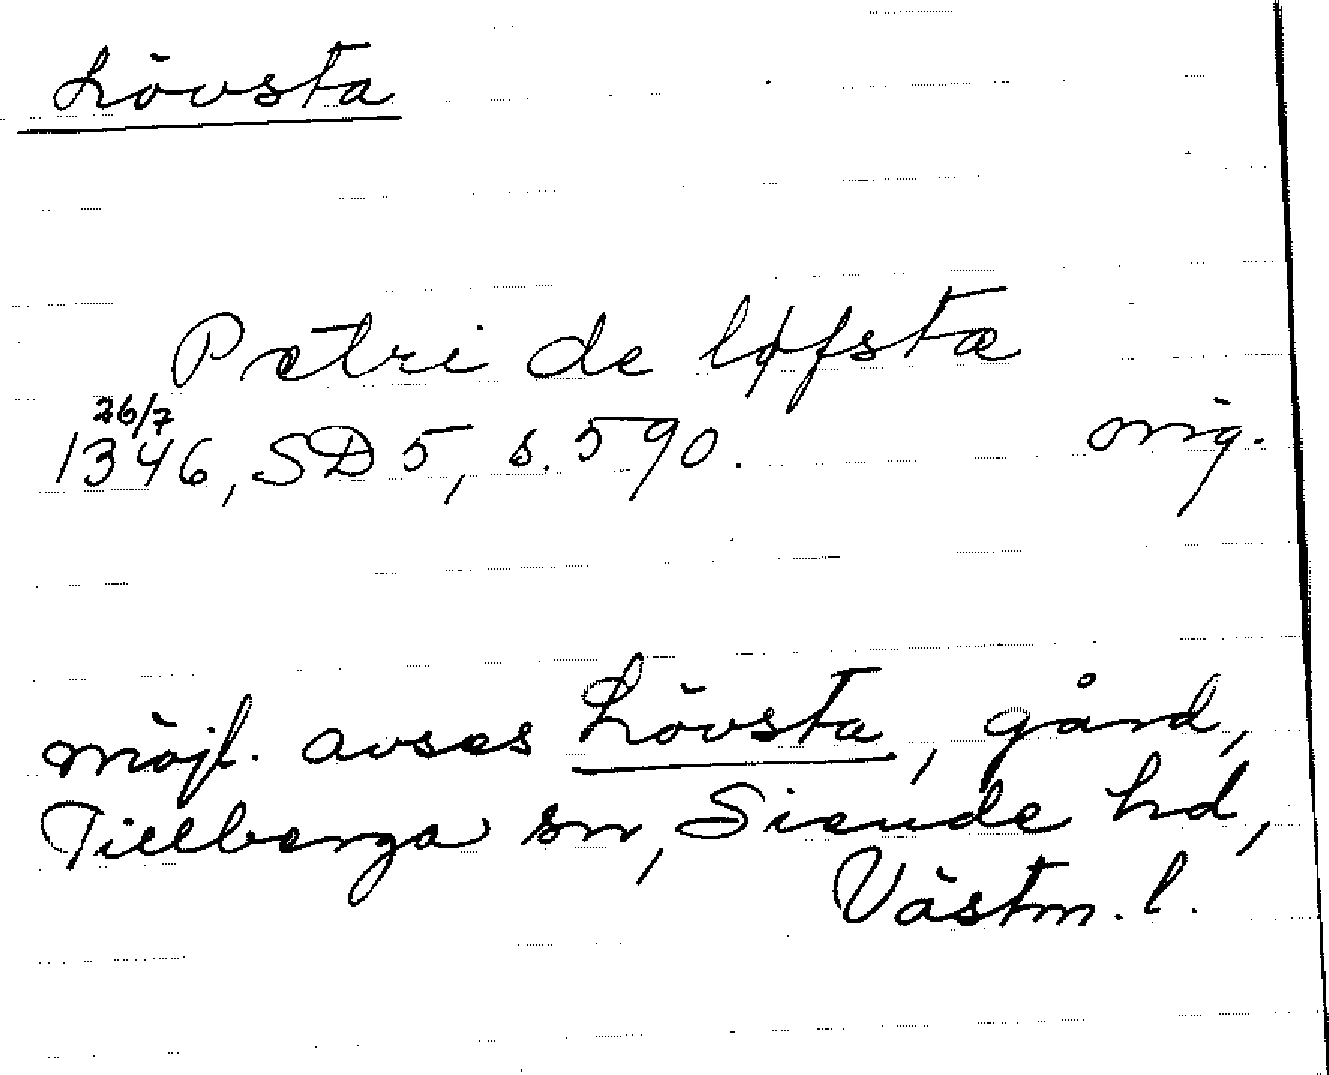 Lövsta
Pætri de løfstæ
26/7
1346, SD 5, s. 590. orig.
möjl. avses Lövsta, gård,
Tillberga sn, Siende hd,
Västm. l.